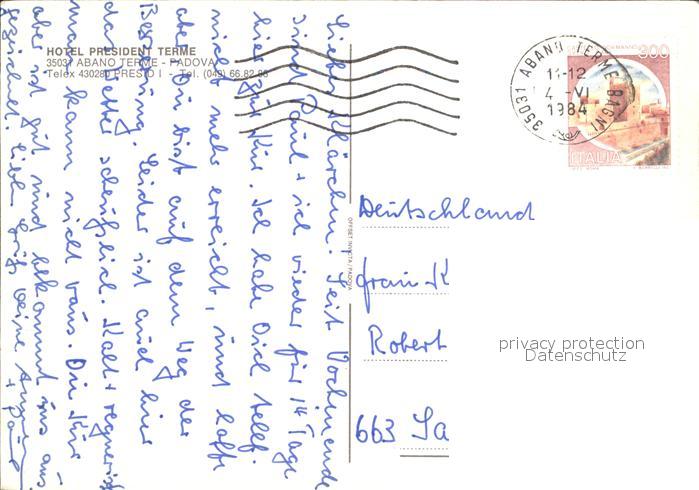 HOTEL PRESIDENT TERME
35031 ABANO TERME - PADOVA
Telex 430280 PRESTO I - Tel. (049) 66.82.88
Seit Wochenende
sind Paul + ich wieder für 14 Tage
hier zur Kur. Ich habe Dich telef.
nicht mehr erreicht, und hoffe
aber Du bist auf dem Weg der
Besserung. Leider ist auch hier
das Wetter scheußlich. Kalt + regnerisch
man kann nicht raus. Die Kur
aber ist gut und bekommt uns aus-
gezeichnet. Liebe Grüße Deine
+ Paul
OFFSET INVICTA / PADOVA
35031 ABANO TERME BAGNI
11-12
4 -VI
1984
300
ITALIA
Deutschland
Frau K
Robert
663 Sa
privacy protection
Datenschutz